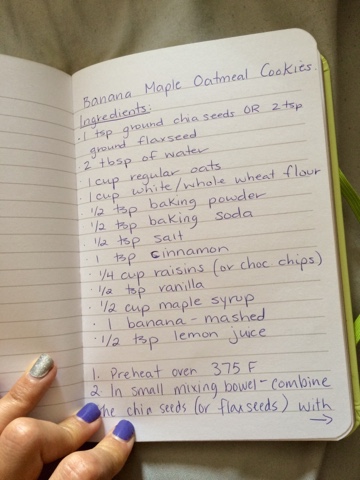 Banana Maple Oatmeal Cookies.
Ingredients:
· 1 tsp ground chia seeds OR 2 tsp
ground flaxseed
· 2 tbsp of water
· 1 cup regular oats
· 1 cup white/whole wheat flour
· 1/2 tsp baking powder
· 1/2 tsp baking soda
· 1/2 tsp salt
· 1 tsp cinnamon
· 1/4 cup raisins (or choc chips)
· 1/2 tsp vanilla
· 1/2 cup maple syrup
· 1 banana - mashed
· 1/2 tsp lemon juice
1. Preheat over 375 F
2. In small mixing bowel - combine
the chia seeds (or flaxseeds) with
→